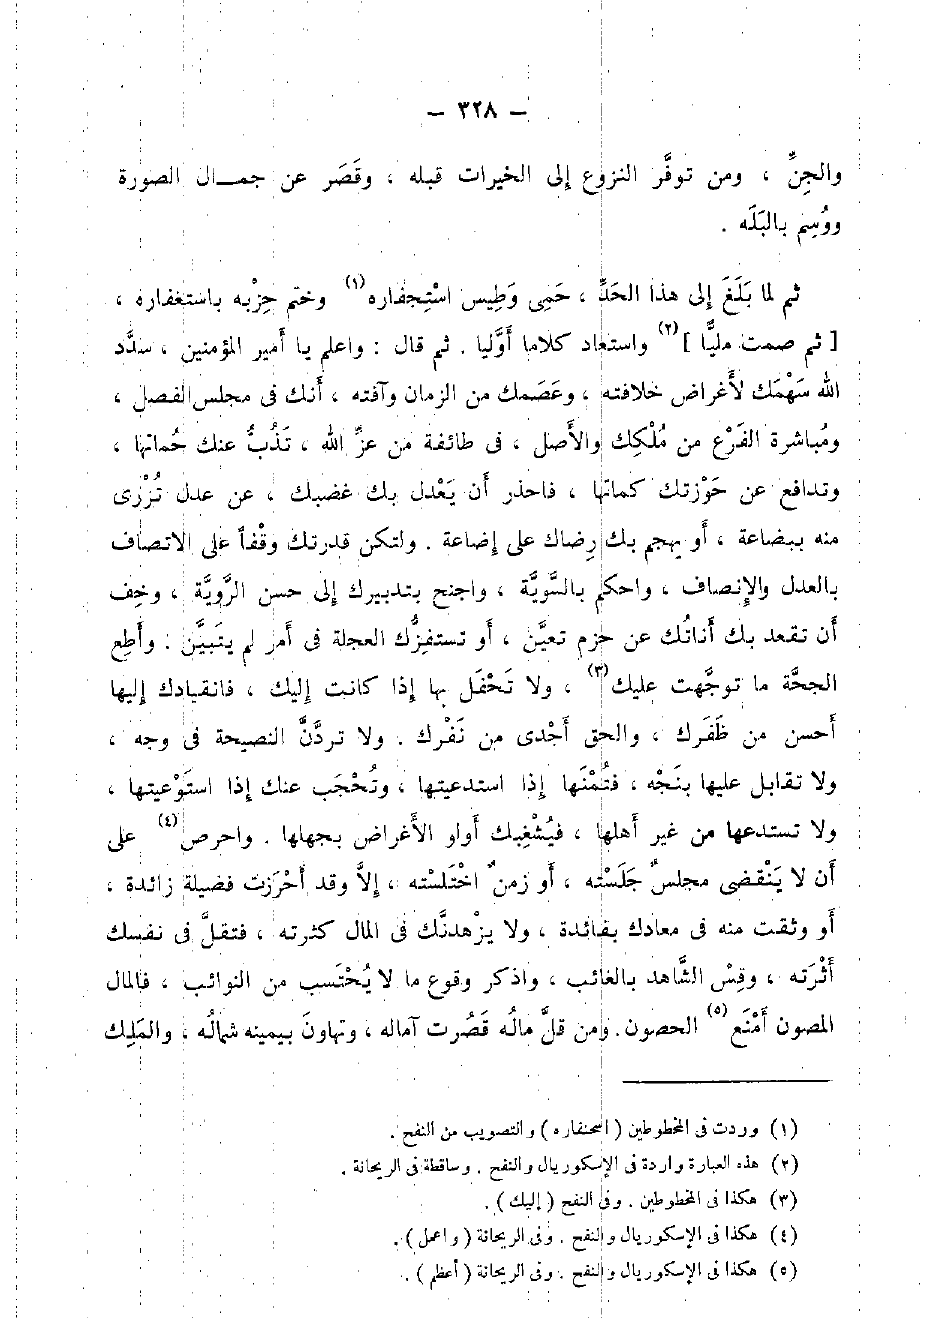 — ٣٢٨ —
والجِنِّ ، ومن توفَّر النزوع إلى الخيرات قبله ، وقَصَر عن جمــال الصورة
ووُسِم بالبَلَه .
ثم لما بَلَغَ إلى هذا الحَدِّ ، حَمِى وَطِيس اسْتِجفاره(١) وختم حِزْبه باستغفاره ،
[ ثم صمت مليًّا ](٢) واستعاد كلاما أَوَّليا . ثم قال : واعلم يا أمير المؤمنين ، سدَّد
الله سَهْمَك لأَغراض خلافته ، وعَصَمك من الزمان وآفته ، أَنك فى مجلس الفصل ،
ومُباشرة الفَرْع من مُلْكِك والأَصل ، فى طائفة من عزِّ الله ، تَذُبُّ عنك حُماتها ،
وتدافع عن حَوْزتك كماتها ، فاحذر أَن يَعْدل بك غضبك ، عن عدل تُزْرى
منه ببضاعة ، أَو يهجم بك رِضاك على إضاعة . ولتكن قدرتك وقْفاً على الاتصاف
بالعدل والإِنصاف ، واحكم بالسَّويَّة ، واجنح بتدبيرك إلى حسن الرَّويَّة ، وخِف
أَن تقعد بك أَناتُك عن حزم تعيَّن ، أَو تستفِزُّك العجلة فى أَمر لم يتَبيَّن . وأَطِع
الحجَّة ما توجَّهت عليك(٣) ، ولا تَحْفَل بها إذا كانت إليك ، فانقيادك إليها
أَحسن من ظَفَرك ، والحق أَجْدى من نَفْرك . ولا تردَّنَّ النصيحة فى وجه ،
ولا تقابل عليها بنَجْه ، فتُمْنَها إذا استدعيتها ، وتُحْجَب عنك إذا استَوْعيتها ،
ولا تستدعها من غير أَهلها ، فيُشْغِبك أَولو الأَغراض بجهلها . واحرص(٤) على
أَن لا يَنْقضى مجلسٌ جَلَسْته ، أَو زمنٌ اختَلَسْته ، إلاَّ وقد أَحْرَزت فضيلة زائدة ،
أَو وثقت منه فى معادك بفائدة ، ولا يزْهدنَّك فى المال كثرته ، فتقلَّ فى نفسك
أَثْرَته ، وقِسْ الشَّاهد بالغائب ، واذكر وقوع ما لا يُحْتَسب من النوائب ، فالمال
المصون أَمْنَع(٥) الحصون. ومن قلَّ مالُه قَصُرت آماله ، وتهاونَ بيمينه شمالُه ، والمَلِك
(١) وردت فى المخطوطين ( اسحنفاره ) والتصويب من النفح .
(٢) هذه العبارة واردة فى الإسكوريال والنفح . وساقطة فى الريحانة .
(٣) هكذا فى المخطوطين . وفى النفح ( إليك ) .
(٤) هكذا فى الإسكوريال والنفح . وفى الريحانة ( واعمل ) .
(٥) هكذا فى الإسكوريال والنفح . وفى الريحانة ( أعظم ) .